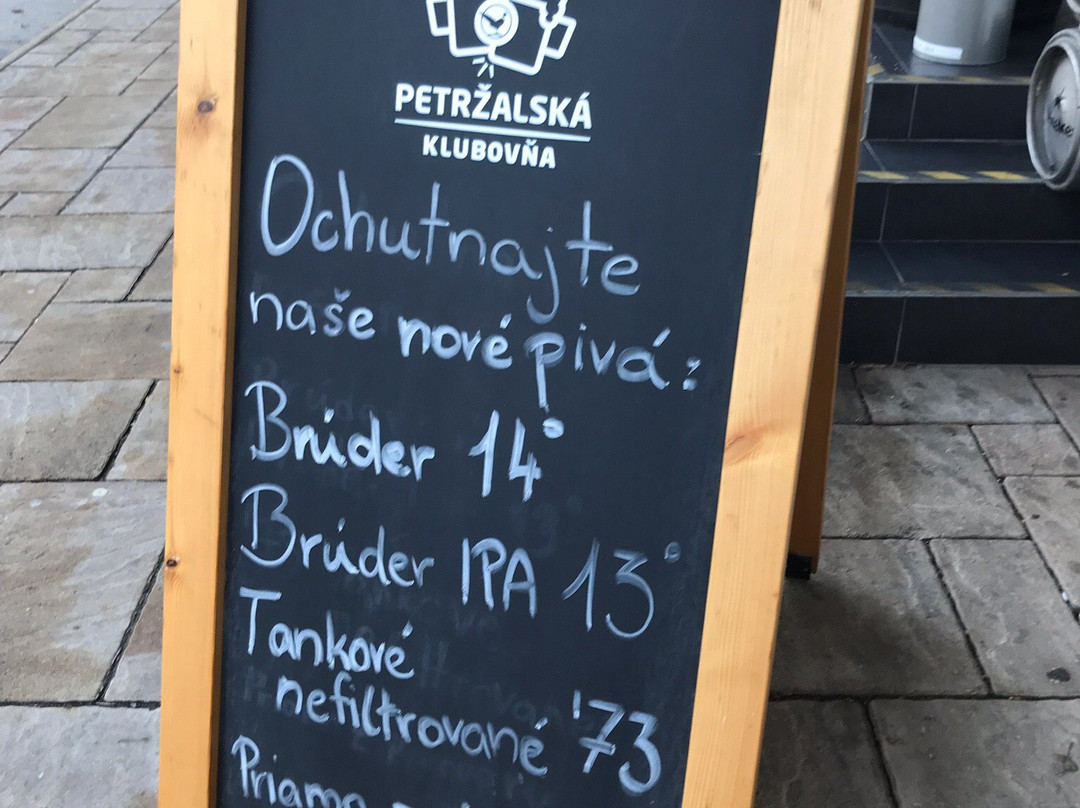 PETRŽALSKÁ
KLUBOVŇA
Ochutnajte
naše nové pivá:
Brúder 14°
Brúder IPA 13°
Tankové
nefiltrované '73
Priamo